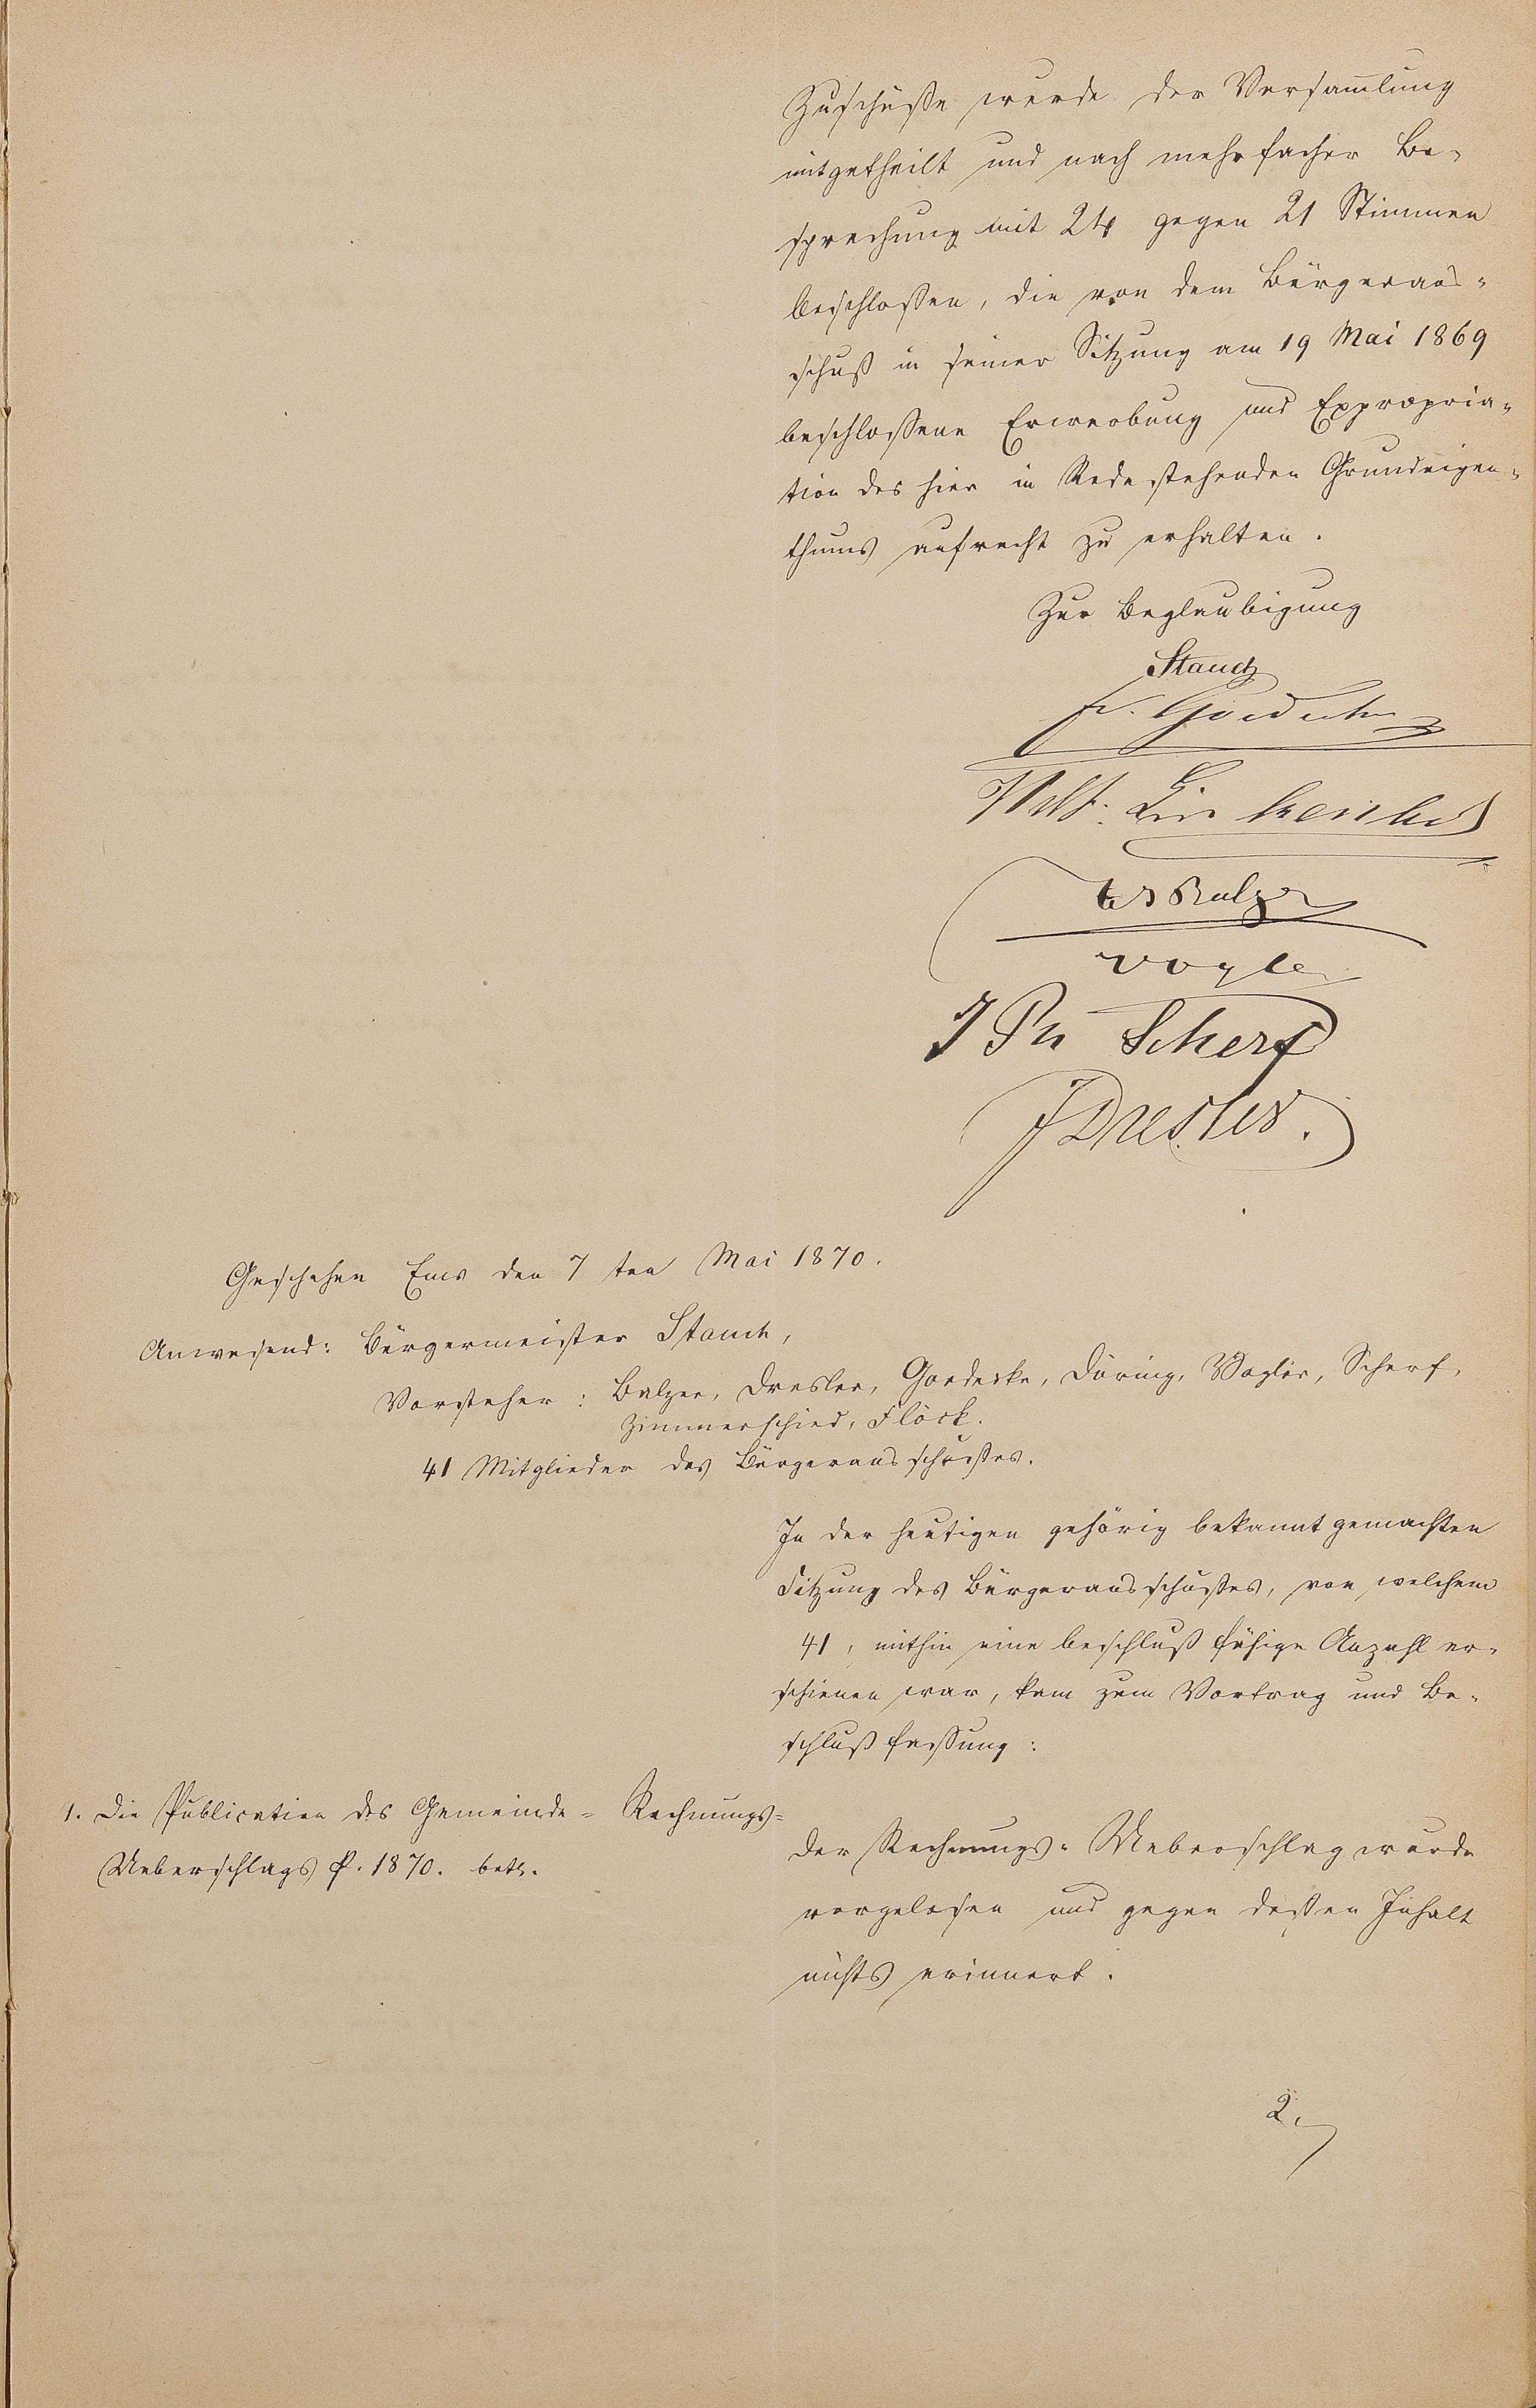 Zuschüße wurde der Versam̄lung
mitgetheilt und nach mehrfacher Be-
sprechung mit 24 gegen 21 Stimmen
beschloßen, die von dem Bürgeraus-
schuß in seiner Sitzung am 19 Mai 1869
beschloßene Erwerbung und Expropria-
tion des hier in Rede stehenden Grundeigen-
thums aufrecht zu erhalten.
Zur Beglaubigung
Stauch
F. Goedecke
Wilh. Linkenbach
Balzer
Vogler
J Ph Scherf
J Dresler.
Geschehen Ems den 7ten Mai 1870.
Anwesend: Bürgermeister Stauch,
Vorsteher: Balzer, Dresler, Goedecke, Düring, Vogler, Scherf,
Zimmerschied, Flöck.
41 Mitglieder des Bürgerausschußes.
In der heutigen gehörig bekannt gemachten
Sitzung des Bürgerausschußes, von welchem
41, mithin eine beschlußfähige Anzahl er-
schienen war, kam zum Vortrag und Be-
schlußfassung:
1. Die Publication des Gemeinde-Rechnungs-
Ueberschlags p. 1870. betr.
Der Rechnungs-Ueberschlag wurde
vorgelesen und gegen deßen Inhalt
nichts erinnert.
2.,